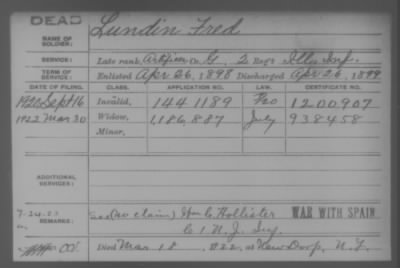 DEAD
NAME OF SOLDIER: Lundin Fred
SERVICE: Late rank, Artificer Co. G, 2 Reg't Ills Inf.
TERM OF SERVICE: Enlisted Apr 26, 1898 Discharged Apr 26, 1899
DATE OF FILING. CLASS. APPLICATION NO. LAW. CERTIFICATE NO.
1920 Sept 16 Invalid, 1441189 1200907
1922 Mar 30 Widow, 1,186,887 July 938458
Minor,
ADDITIONAL SERVICES:
REMARKS: See (no claim) Wm C Hollister WAR WITH SPAIN
C 1 N. J. Inf.
Died Mar 18, 1922, at New Dorp, N. Y.